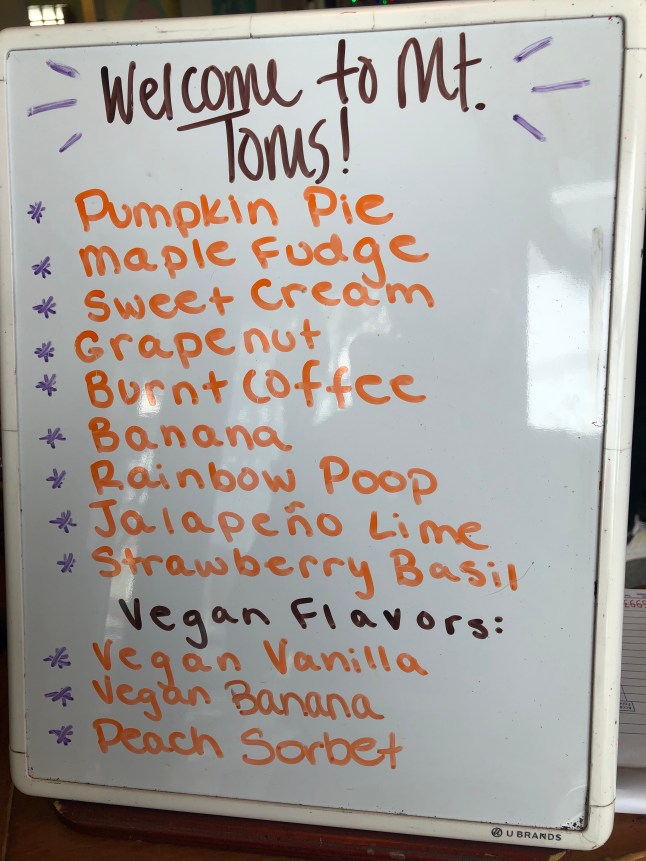 Welcome to Mt.
Toms!
* Pumpkin Pie
* maple Fudge
* Sweet Cream
* Grapenut
* Burnt Coffee
* Banana
* Rainbow Poop
* Jalapeño Lime
* Strawberry Basil
Vegan Flavors:
* Vegan Vanilla
* Vegan Banana
* Peach Sorbet
U BRANDS